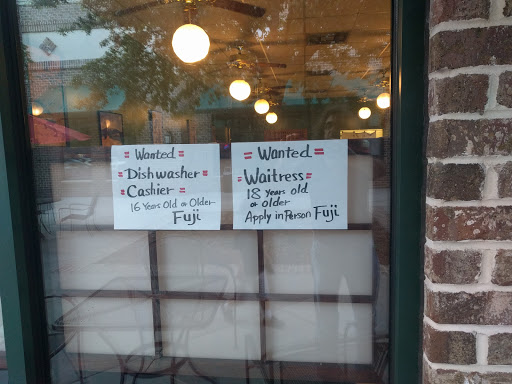 = Wanted =
= Dishwasher =
= Cashier =
16 Years Old or Older
Fuji
= Wanted =
= Waitress =
18 years old
or older
Apply in Person Fuji